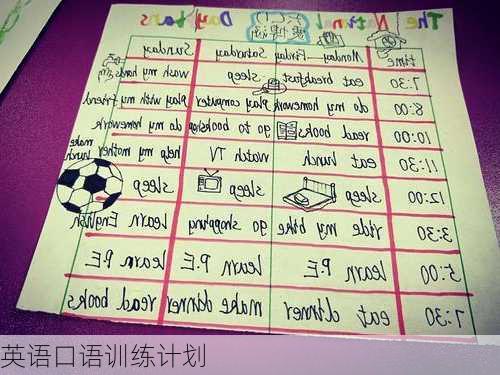 The National Day Stars
time Monday—Friday Saturday Sunday
7:30 eat breakfast sleep wash my hands
8:00 do my homework play computer play with my friend
10:00 read books go to bookshop do my homework
11:30 eat lunch watch TV help my mother make lunch
12:00 sleep sleep sleep
3:30 ride my bike go shopping learn English
5:00 learn P.E learn P.E learn P.E
7:30 eat dinner make dinner read books
英语口语训练计划